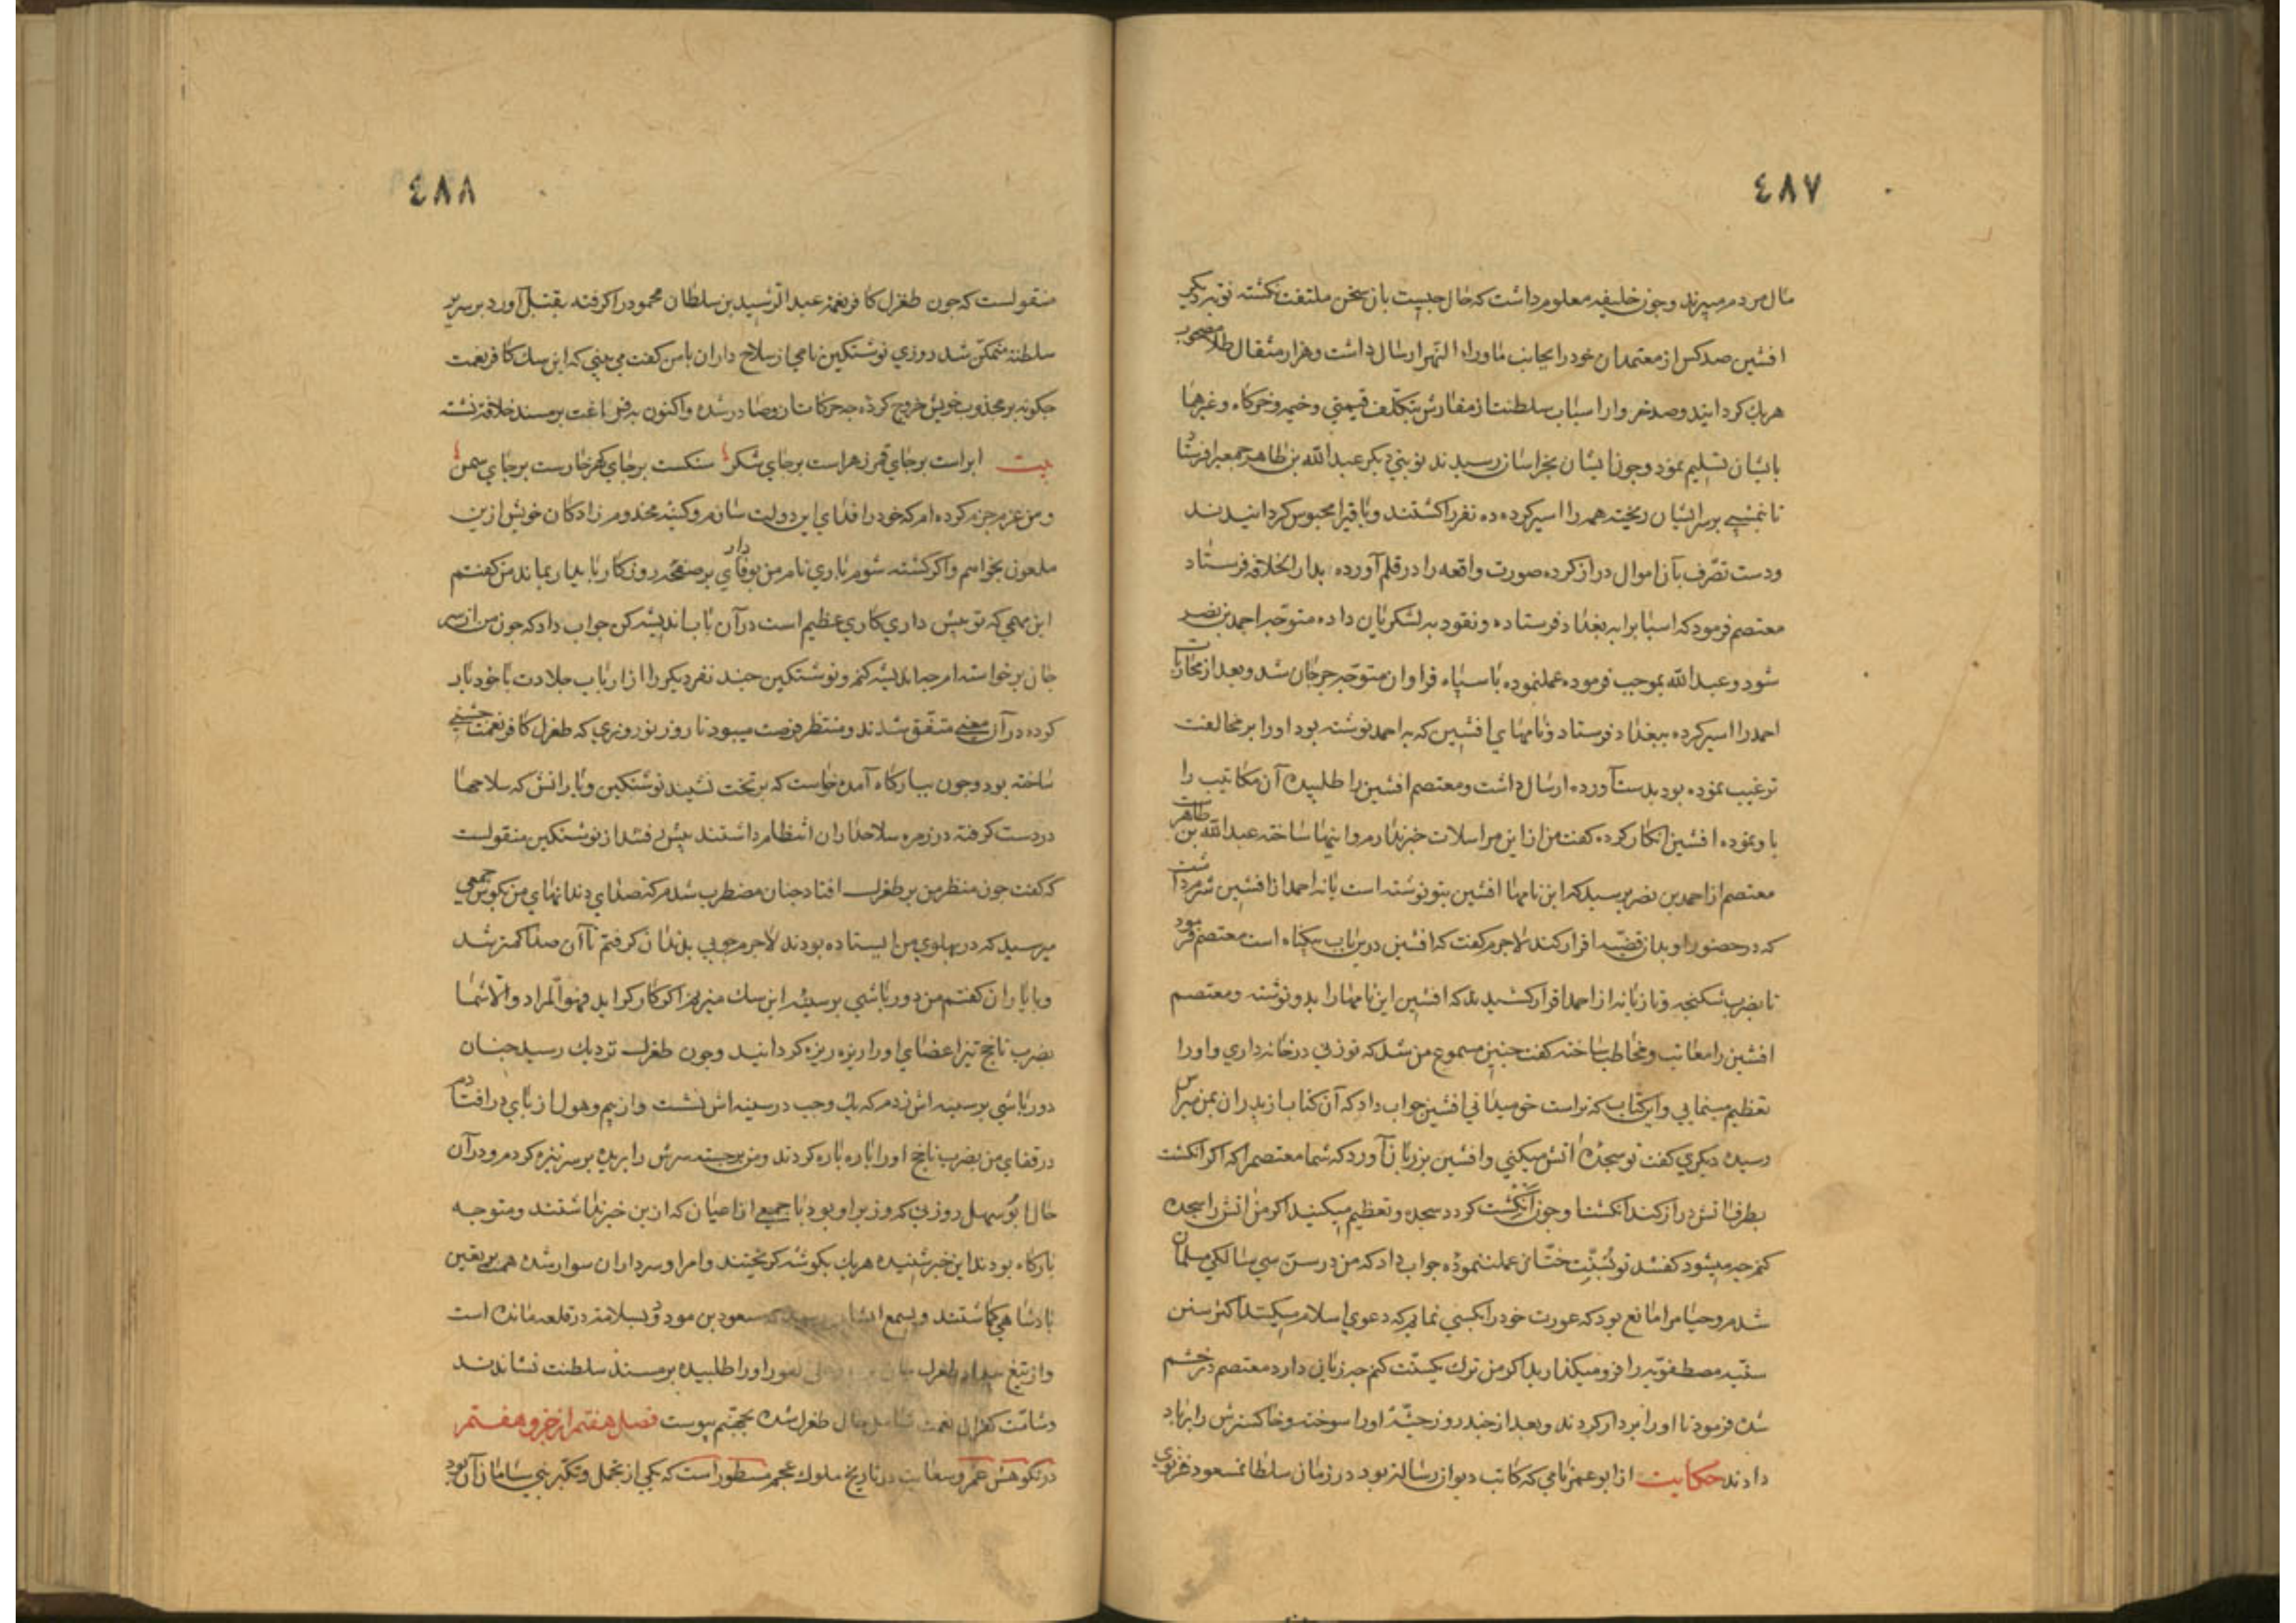 ٤٨٧
مال مردم میبرند و چون خلیفه معلوم داشت که حال چیست بان سخن ملتفت نکشته نوبه دیکر
افشین صد کس از معتمدان خود را بجانب ماوراء النهر ارسال داشت و هزار مثقال طلا مصحوب
هریک کردانید و صد خروار اسباب سلطنت از مفارش بتکلف قیمتی و خیمه و خرکاه و غیرها
بایشان تسلیم نمود و چون ایشان بخراسان رسیدند نوبتی دیکر عبد الله بن طاهر جمعیرا فرستاد
تا بر سر ایشان ریخته همه را اسیر کرده ده نفر را کشتند و باقیرا محبوس کردانیدند
و دست تصرف بآن اموال دراز کرده صورت واقعه را در قلم آورده بدار الخلافه فرستاد
معتصم فرمود که اسبابرا به بغداد فرستاده و نقود به لشکریان داده متوجه احمد بن نصر
شود و عبد الله بموجب فرموده عمل نموده با سپاه فراوان متوجه جرجان شد و بعد از محاربات
احمد را اسیر کرده ببغداد فرستاد و نامهای افشین که به احمد نوشته بود او را بر مخالفت
ترغیب نموده بود بدست آورده ارسال داشت و معتصم افشین را طلبیده آن مکاتیب را
باو نموده افشین انکار کرده کفت من از این مراسلات خبر ندارم و اینها ساخته عبد الله بن طاهر است
معتصم از احمد بن نصر پرسید که این نامها افشین بتو نوشته است یا نه احمد از افشین شرم داشت
که در حضور او بدان قضیه اقرار کند لاجرم کفت که افشین درین باب بیکناه است معتصم فرمود
تا بضرب شکنجه و تازیانه از احمد اقرار کشیدند که افشین این نامها را بدو نوشته و معتصم
افشین را معاتب و مخاطب ساخته کفت چنین مسموع من شد که تو زنی در خانه داری و او را
تعظیم مینمایی و این کتاب که تراست خود میدانی افشین جواب داد که آن کتاب از پدران بمن میراث
رسیده دیکری کفت تو سجده آتش میکنی و افشین بر زبان آورد که شما معتصم را که اکر انکشت
بطرف آتش دراز کند انکشتنا و چون انکشت کردد سجده و تعظیم میکنید اکر من آتش را سجده
کنم چه میشود کفتند تو بسنت ختان عمل ننموده جواب داد که من در سن سی سالکی مسلمان
شدم و حیا مرا مانع بود که عورت خود را بکسی نمایم که دعوی اسلام میکنند اکثر سنن
سنیه مصطفویه را فرو میکذارند اکر من ترک یک سنت کنم چه زیانی دارد معتصم در خشم
شده فرمود تا او را بر دار کردند و بعد از چند روز جثه او را سوخته و خاکسترش را بر باد
دادند حکایت از ابو عمر نامی که کاتب دیوان رسالت بود در زمان سلطان مسعود غزنوی
٤٨٨
منقولست که چون طغرل کافر نعمه عبد الرشید بن سلطان محمود را کرفته بقتل آورد بر سریر
سلطنه متمکن شد روزی نوشتکین نامی از سلاح داران با من کفت می بینی که این سک کافر نعمت
چکونه بر مخدوب خویش خروج کرده چه حرکات از و صادر شده و اکنون به فراغت بر مسند خلافه نشسته
بیت ابر است بر جای قمر زهر است بر جای شکر سنکست بر جای کهر خارست بر جای سمن
و من عزم جزم کرده ام که خود را فدای این دولت سازم و کینه مخدوم زادکان خویش ازین
ملعون بخواهم و اکر کشته شوم باری نام من بوفاداری بر صفحه روزکار پایدار بماند من کفتم
این مهمی که تو پیش داری کاری عظیم است در آن باب اندیشه کن جواب داد که چون من از سر
جان برخواسته ام چه اندیشه کنم و نوشتکین چند نفر دیکر را از ارباب جلادت با خود یار
کرده در آن معنی متفق شدند و منتظر فرصت میبود تا روز نوروزی که طغرل کافر نعمت جشنی
ساخته بود و چون ببارکاه آمده خواست که بر تخت نشیند نوشتکین و یارانش که سلاحها
در دست کرفته در زمره سلاحداران انتظام داشتند پیش رفتند از نوشتکین منقولست
که کفت چون منظر من بر طغرل افتاد چنان مضطرب شدم که صدای دندانهای من بکوش جمعی
میرسید که در پهلوی من ایستاده بودند لاجرم چوبی بدندان کرفتم تا آن صدا کمتر شد
و با یاران کفتم من دورباشی بر سینه این سک میزنم اکر کارکر اید فهو المراد و الا شما
بضرب ناچخ تیز اعضای او را ریزه ریزه کردانید و چون طغرل نزدیک رسید چنان
دورباشی بر سینه اش زدم که یک وجب در سینه اش نشست و از بیم و هول از پای در افتادم
در قفای من بضرب ناچخ او را پاره پاره کردند و من برجسته سرش را بریده بر سر نیزه کردم و در آن
حال ابو سهل روزنی که وزیر او بود با جمعی از اعیان که ازین خبر نداشتند و متوجه
بارکاه بودند این خبر شنیده هریک بکوشه کریختند و امرا و سرداران سوار شده همت بر تعیین
پادشاهی کماشتند و بسمع ایشان رسید که مسعود بن مودود بسلامت در قلعه مانده است
و از تیغ بیداد طغرل جان او را طلبیده بر مسند سلطنت نشاندند
و شامت کفران نعمت شامل حال طغرل شده بجهنم پیوست فصل هفتم از جزو هفتم
در نکوهش غمز و سعایت در تاریخ ملوک عجم مسطور است که یکی از تجمل و تکبر بنی سامان آن بود